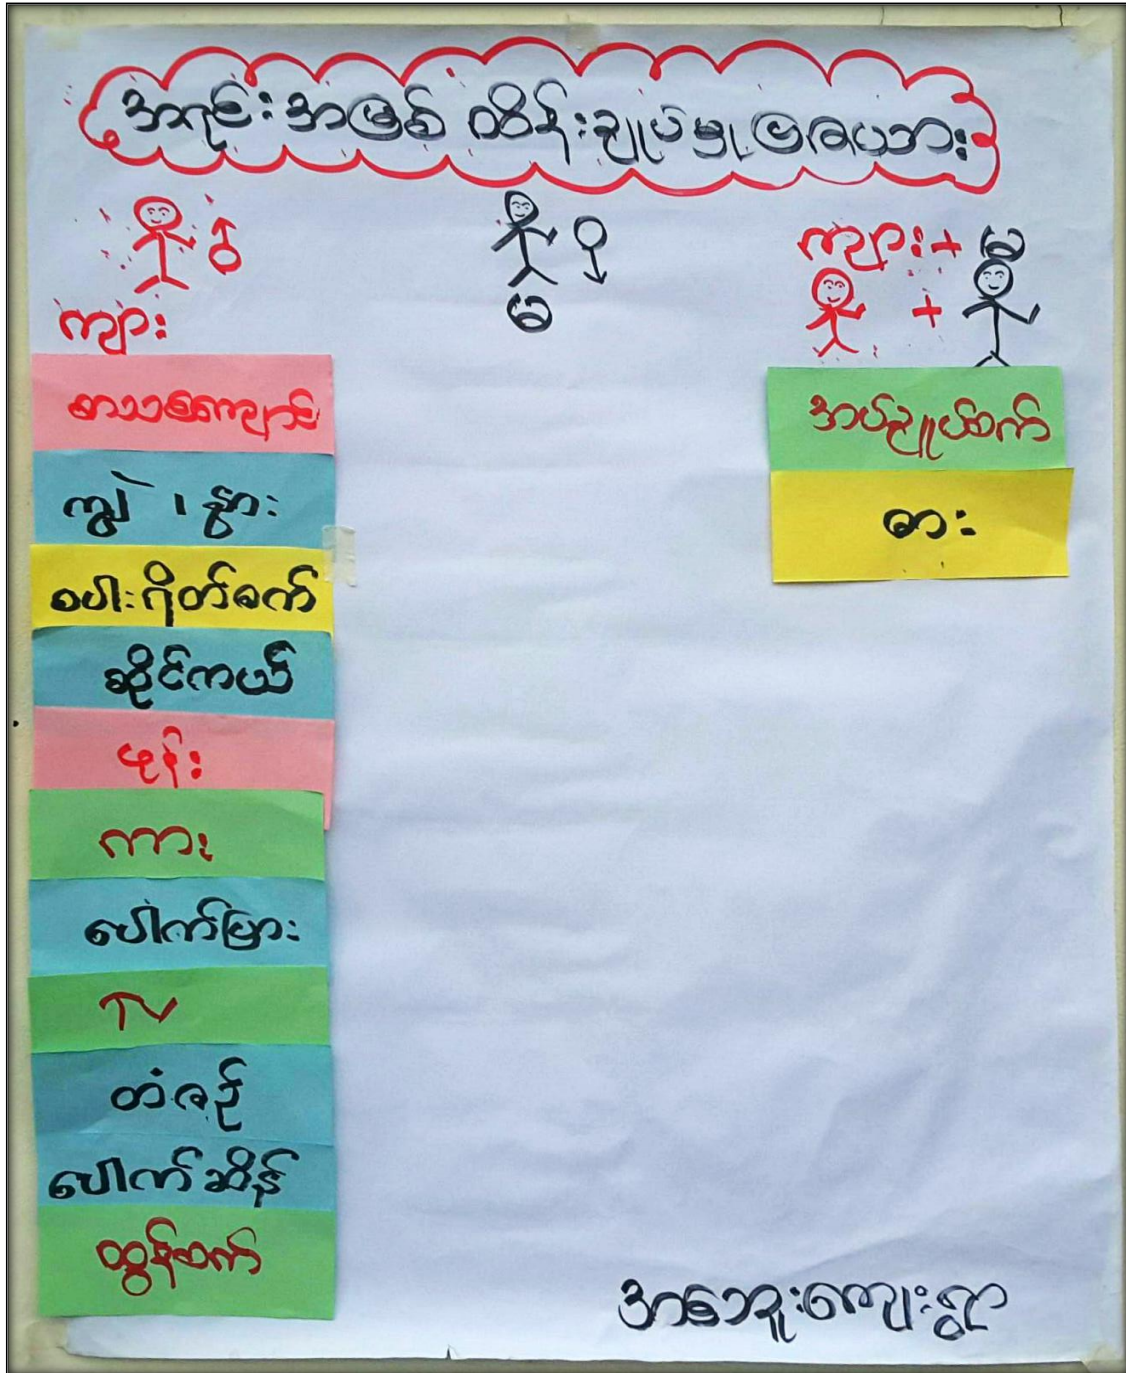 အရင်းအမြစ် ထိန်းချုပ်မှု ဗဟုဇယား
ကျား
မ
ကျား + မ
+
စာသင်ကျောင်း
ကျွဲ ၊ နွား
စပါးရိတ်စက်
ဆိုင်ကယ်
ဖုန်း
ကား
ပေါက်ပြား
TV
တံစဉ်
ပေါက်ဆိန်
ထွန်စက်
အပ်ချုပ်စက်
ဓား